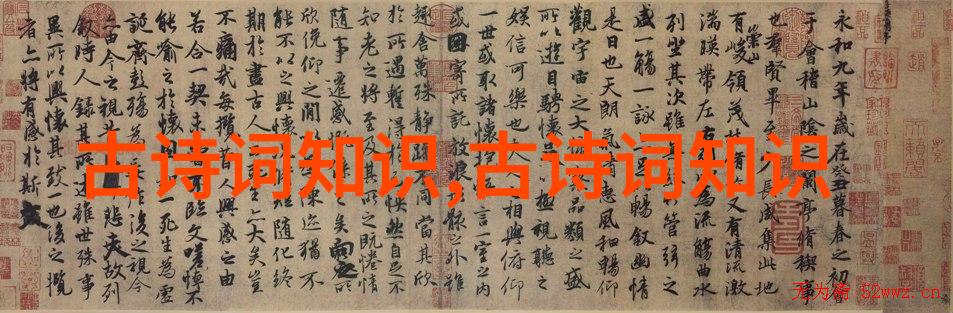 永和九年歲在癸丑暮春之初會
于會稽山陰之蘭亭脩稧事
也羣賢畢至少長咸集此地
有崇山峻領茂林又有清流激
湍暎帶左右為流觴曲水
列坐其次雖管弦之
盛一觴一詠暢叙幽情
是日也天朗氣惠風和暢仰
觀宇宙之大品類之盛
所以遊目騁懷極視聽之
娛信可樂也夫人相與俯仰
一世或取諸懷言一室之內
或因寄所託放浪骸之外雖
趣舍萬殊靜同當其欣
於所遇蹔得怏然自足不
知老之將至及其所之既惓情
隨事遷感慨之矣向之所
欣俛仰之閒陳迹猶不
能不以之興懷隨化終
期於盡古人云大矣豈
不痛哉每攬人興感之由
若合一契未臨文嗟悼不
能喻之於懷一死生為虛
誕齊彭殤為作後之視今
亦由今之視悲夫故列
叙時人錄其所述雖世殊事
異所以興懷其致一也後之攬
者亦將有感於斯文
古诗词知识,古诗词知识
天为斋 52wwz.cn